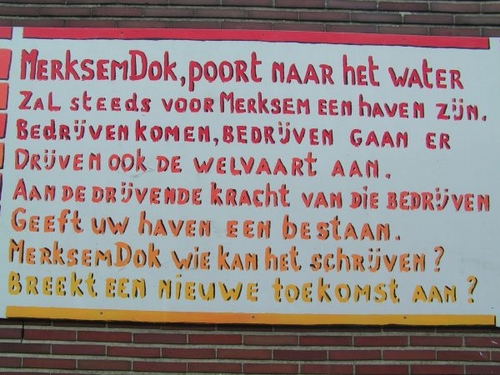 MerksemDok, poort naar het water
Zal steeds voor Merksem een haven zijn.
Bedrijven komen, bedrijven gaan er
Drijven ook de welvaart aan.
Aan de drijvende kracht van die bedrijven
Geeft uw haven een bestaan.
MerksemDok wie kan het schrijven?
Breekt een nieuwe toekomst aan?